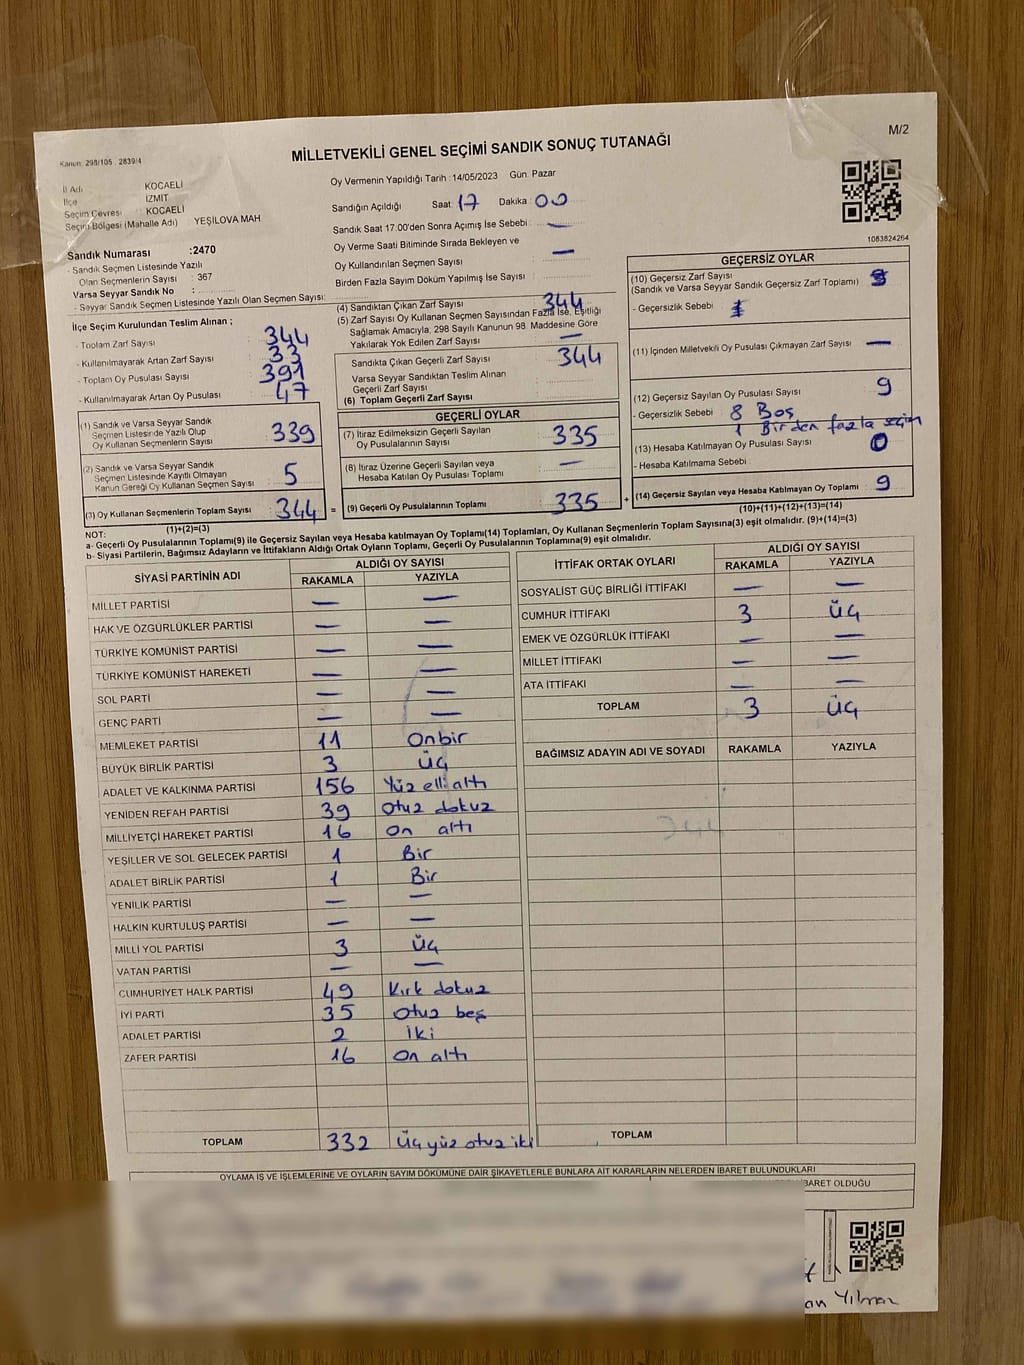 M/2
Kanun: 298/105 , 2839/4
MİLLETVEKİLİ GENEL SEÇİMİ SANDIK SONUÇ TUTANAĞI
İl Adı KOCAELİ
İlçe İZMİT
Seçim Çevresi KOCAELİ
Seçim Bölgesi (Mahalle Adı) YEŞİLOVA MAH
Oy Vermenin Yapıldığı Tarih : 14/05/2023 Gün: Pazar
Sandığın Açıldığı Saat : 17 Dakika : 00
Sandık Saat 17.00'den Sonra Açımış İse Sebebi : —
Oy Verme Saati Bitiminde Sırada Bekleyen ve
Oy Kullandırılan Seçmen Sayısı : —
Birden Fazla Sayım Döküm Yapılmış İse Sayısı :
1083824264
Sandık Numarası :2470
- Sandık Seçmen Listesinde Yazılı
Olan Seçmenlerin Sayısı : 367
Varsa Seyyar Sandık No :
- Seyyar Sandık Seçmen Listesinde Yazılı Olan Seçmen Sayısı:
İlçe Seçim Kurulundan Teslim Alınan ;
- Toplam Zarf Sayısı : 344
- Kullanılmayarak Artan Zarf Sayısı : 33
- Toplam Oy Pusulası Sayısı : 391
- Kullanılmayarak Artan Oy Pusulası : 47
(1) Sandık ve Varsa Seyyar Sandık
Seçmen Listesinde Yazılı Olup
Oy Kullanan Seçmenlerin Sayısı : 339
(2) Sandık ve Varsa Seyyar Sandık
Seçmen Listesinde Kayıtlı Olmayan
Kanun Gereği Oy Kullanan Seçmen Sayısı : 5
(3) Oy Kullanan Seçmenlerin Toplam Sayısı : 344 =
(1)+(2)=(3)
(4) Sandıktan Çıkan Zarf Sayısı : 344
(5) Zarf Sayısı Oy Kullanan Seçmen Sayısından Fazla İse, Eşitliği
Sağlamak Amacıyla, 298 Sayılı Kanunun 98. Maddesine Göre
Yakılarak Yok Edilen Zarf Sayısı : —
Sandıkta Çıkan Geçerli Zarf Sayısı : 344
Varsa Seyyar Sandıktan Teslim Alınan
Geçerli Zarf Sayısı :
(6) Toplam Geçerli Zarf Sayısı :
GEÇERLİ OYLAR
(7) İtiraz Edilmeksizin Geçerli Sayılan
Oy Pusulalarının Sayısı : 335
(8) İtiraz Üzerine Geçerli Sayılan veya
Hesaba Katılan Oy Pusulası Toplamı : —
(9) Geçerli Oy Pusulalarının Toplamı : 335 +
GEÇERSİZ OYLAR
(10) Geçersiz Zarf Sayısı
(Sandık ve Varsa Seyyar Sandık Geçersiz Zarf Toplamı) :
- Geçersizlik Sebebi :
(11) İçinden Milletvekili Oy Pusulası Çıkmayan Zarf Sayısı : —
(12) Geçersiz Sayılan Oy Pusulası Sayısı : 9
- Geçersizlik Sebebi : 8 Boş
1 Birden fazla seçim
(13) Hesaba Katılmayan Oy Pusulası Sayısı : 0
- Hesaba Katılmama Sebebi :
(14) Geçersiz Sayılan veya Hesaba Katılmayan Oy Toplamı : 9
(10)+(11)+(12)+(13)=(14)
NOT:
a- Geçerli Oy Pusulalarının Toplamı(9) ile Geçersiz Sayılan veya Hesaba katılmayan Oy Toplamı(14) Toplamları, Oy Kullanan Seçmenlerin Toplam Sayısına(3) eşit olmalıdır. (9)+(14)=(3)
b- Siyasi Partilerin, Bağımsız Adayların ve İttifakların Aldığı Ortak Oyların Toplamı, Geçerli Oy Pusulalarının Toplamına(9) eşit olmalıdır.
SİYASİ PARTİNİN ADI ALDIĞI OY SAYISI
RAKAMLA YAZIYLA
MİLLET PARTİSİ — —
HAK VE ÖZGÜRLÜKLER PARTİSİ — —
TÜRKİYE KOMÜNİST PARTİSİ — —
TÜRKİYE KOMÜNİST HAREKETİ — —
SOL PARTİ — —
GENÇ PARTİ — —
MEMLEKET PARTİSİ 11 Onbir
BÜYÜK BİRLİK PARTİSİ 3 Üç
ADALET VE KALKINMA PARTİSİ 156 Yüz elli altı
YENİDEN REFAH PARTİSİ 39 Otuz dokuz
MİLLİYETÇİ HAREKET PARTİSİ 16 On altı
YEŞİLLER VE SOL GELECEK PARTİSİ 1 Bir
ADALET BİRLİK PARTİSİ 1 Bir
YENİLİK PARTİSİ — —
HALKIN KURTULUŞ PARTİSİ — —
MİLLİ YOL PARTİSİ 3 Üç
VATAN PARTİSİ — —
CUMHURİYET HALK PARTİSİ 49 Kırk dokuz
İYİ PARTİ 35 Otuz beş
ADALET PARTİSİ 2 İki
ZAFER PARTİSİ 16 On altı
TOPLAM 332 Üçyüz otuz iki
İTTİFAK ORTAK OYLARI ALDIĞI OY SAYISI
RAKAMLA YAZIYLA
SOSYALİST GÜÇ BİRLİĞİ İTTİFAKI — —
CUMHUR İTTİFAKI 3 Üç
EMEK VE ÖZGÜRLÜK İTTİFAKI — —
MİLLET İTTİFAKI — —
ATA İTTİFAKI — —
TOPLAM 3 Üç
BAĞIMSIZ ADAYIN ADI VE SOYADI RAKAMLA YAZIYLA
344
TOPLAM
OYLAMA İŞ VE İŞLEMLERİNE VE OYLARIN SAYIM DÖKÜMÜNE DAİR ŞİKAYETLERLE BUNLARA AİT KARARLARIN NELERDEN İBARET BULUNDUKLARI
İBARET OLDUĞU
an Yılmaz